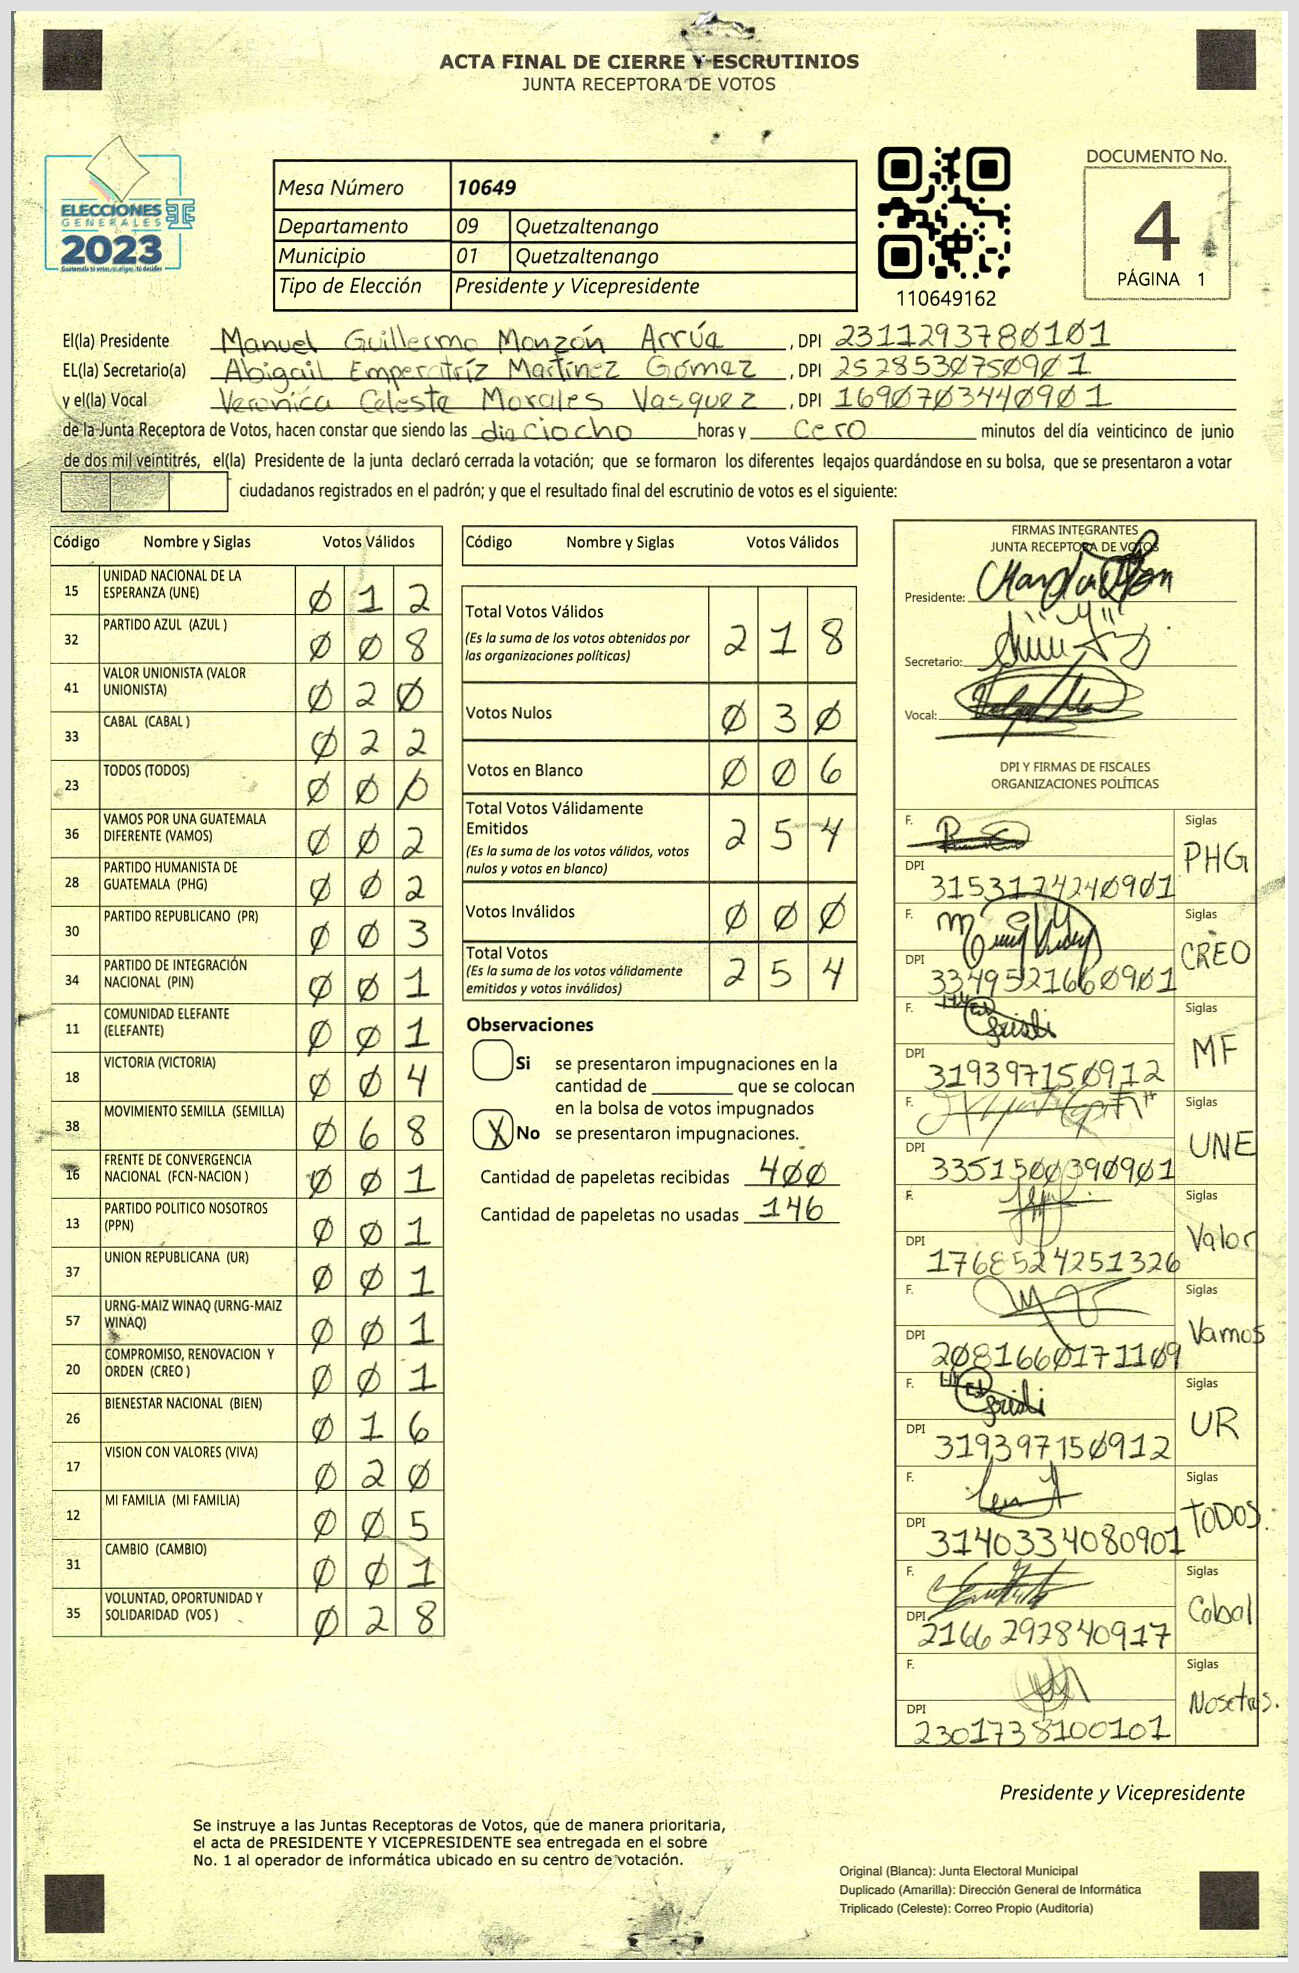 ACTA FINAL DE CIERRE Y ESCRUTINIOS
JUNTA RECEPTORA DE VOTOS
ELECCIONES
GENERALES
2023
Guatemala tú votas, tú eliges, tú decides
Mesa Número 10649
Departamento 09 Quetzaltenango
Municipio 01 Quetzaltenango
Tipo de Elección Presidente y Vicepresidente
110649162
DOCUMENTO No.
4
PÁGINA 1
El(la) Presidente Manuel Guillermo Monzón Arrúa, DPI 2311293780101
EL(la) Secretario(a) Abigail Emperatríz Martínez Gómez, DPI 2528530750901
y el(la) Vocal Verónica Celeste Morales Vasquez, DPI 1690703440901
de la Junta Receptora de Votos, hacen constar que siendo las dieciocho horas y cero minutos del día veinticinco de junio
de dos mil veintitrés, el(la) Presidente de la junta declaró cerrada la votación; que se formaron los diferentes legajos guardándose en su bolsa, que se presentaron a votar
ciudadanos registrados en el padrón; y que el resultado final del escrutinio de votos es el siguiente:
Código Nombre y Siglas Votos Válidos
15 UNIDAD NACIONAL DE LA ESPERANZA (UNE) 0 1 2
32 PARTIDO AZUL (AZUL ) 0 0 8
41 VALOR UNIONISTA (VALOR UNIONISTA) 0 2 0
33 CABAL (CABAL ) 0 2 2
23 TODOS (TODOS) 0 0 0
36 VAMOS POR UNA GUATEMALA DIFERENTE (VAMOS) 0 0 2
28 PARTIDO HUMANISTA DE GUATEMALA (PHG) 0 0 2
30 PARTIDO REPUBLICANO (PR) 0 0 3
34 PARTIDO DE INTEGRACIÓN NACIONAL (PIN) 0 0 1
11 COMUNIDAD ELEFANTE (ELEFANTE) 0 0 1
18 VICTORIA (VICTORIA) 0 0 4
38 MOVIMIENTO SEMILLA (SEMILLA) 0 6 8
16 FRENTE DE CONVERGENCIA NACIONAL (FCN-NACION ) 0 0 1
13 PARTIDO POLITICO NOSOTROS (PPN) 0 0 1
37 UNION REPUBLICANA (UR) 0 0 1
57 URNG-MAIZ WINAQ (URNG-MAIZ WINAQ) 0 0 1
20 COMPROMISO, RENOVACION Y ORDEN (CREO ) 0 0 1
26 BIENESTAR NACIONAL (BIEN) 0 1 6
17 VISION CON VALORES (VIVA) 0 2 0
12 MI FAMILIA (MI FAMILIA) 0 0 5
31 CAMBIO (CAMBIO) 0 0 1
35 VOLUNTAD, OPORTUNIDAD Y SOLIDARIDAD (VOS ) 0 2 8
Código Nombre y Siglas Votos Válidos
Total Votos Válidos 2 1 8
(Es la suma de los votos obtenidos por
las organizaciones políticas)
Votos Nulos 0 3 0
Votos en Blanco 0 0 6
Total Votos Válidamente
Emitidos 2 5 4
(Es la suma de los votos válidos, votos
nulos y votos en blanco)
Votos Inválidos 0 0 0
Total Votos 2 5 4
(Es la suma de los votos válidamente
emitidos y votos inválidos)
Observaciones
Si se presentaron impugnaciones en la
cantidad de ________ que se colocan
en la bolsa de votos impugnados
X No se presentaron impugnaciones.
Cantidad de papeletas recibidas 400
Cantidad de papeletas no usadas 146
FIRMAS INTEGRANTES
JUNTA RECEPTORA DE VOTOS
Presidente:
Secretario:
Vocal:
DPI Y FIRMAS DE FISCALES
ORGANIZACIONES POLÍTICAS
F. Siglas PHG
DPI 3153174240901
F. Siglas CREO
DPI 3349521660901
F. Siglas MF
DPI 319397150912
F. Siglas UNE
DPI 3351500390901
F. Siglas Valor
DPI 1768524251326
F. Siglas Vamos
DPI 2081660171109
F. Siglas UR
DPI 319397150912
F. Siglas TODOS.
DPI 3140334080901
F. Siglas Cabal
DPI 2166292840917
F. Siglas Nosotros.
DPI 2301738100101
Presidente y Vicepresidente
Se instruye a las Juntas Receptoras de Votos, que de manera prioritaria,
el acta de PRESIDENTE Y VICEPRESIDENTE sea entregada en el sobre
No. 1 al operador de informática ubicado en su centro de votación.
Original (Blanca): Junta Electoral Municipal
Duplicado (Amarilla): Dirección General de Informática
Triplicado (Celeste): Correo Propio (Auditoria)